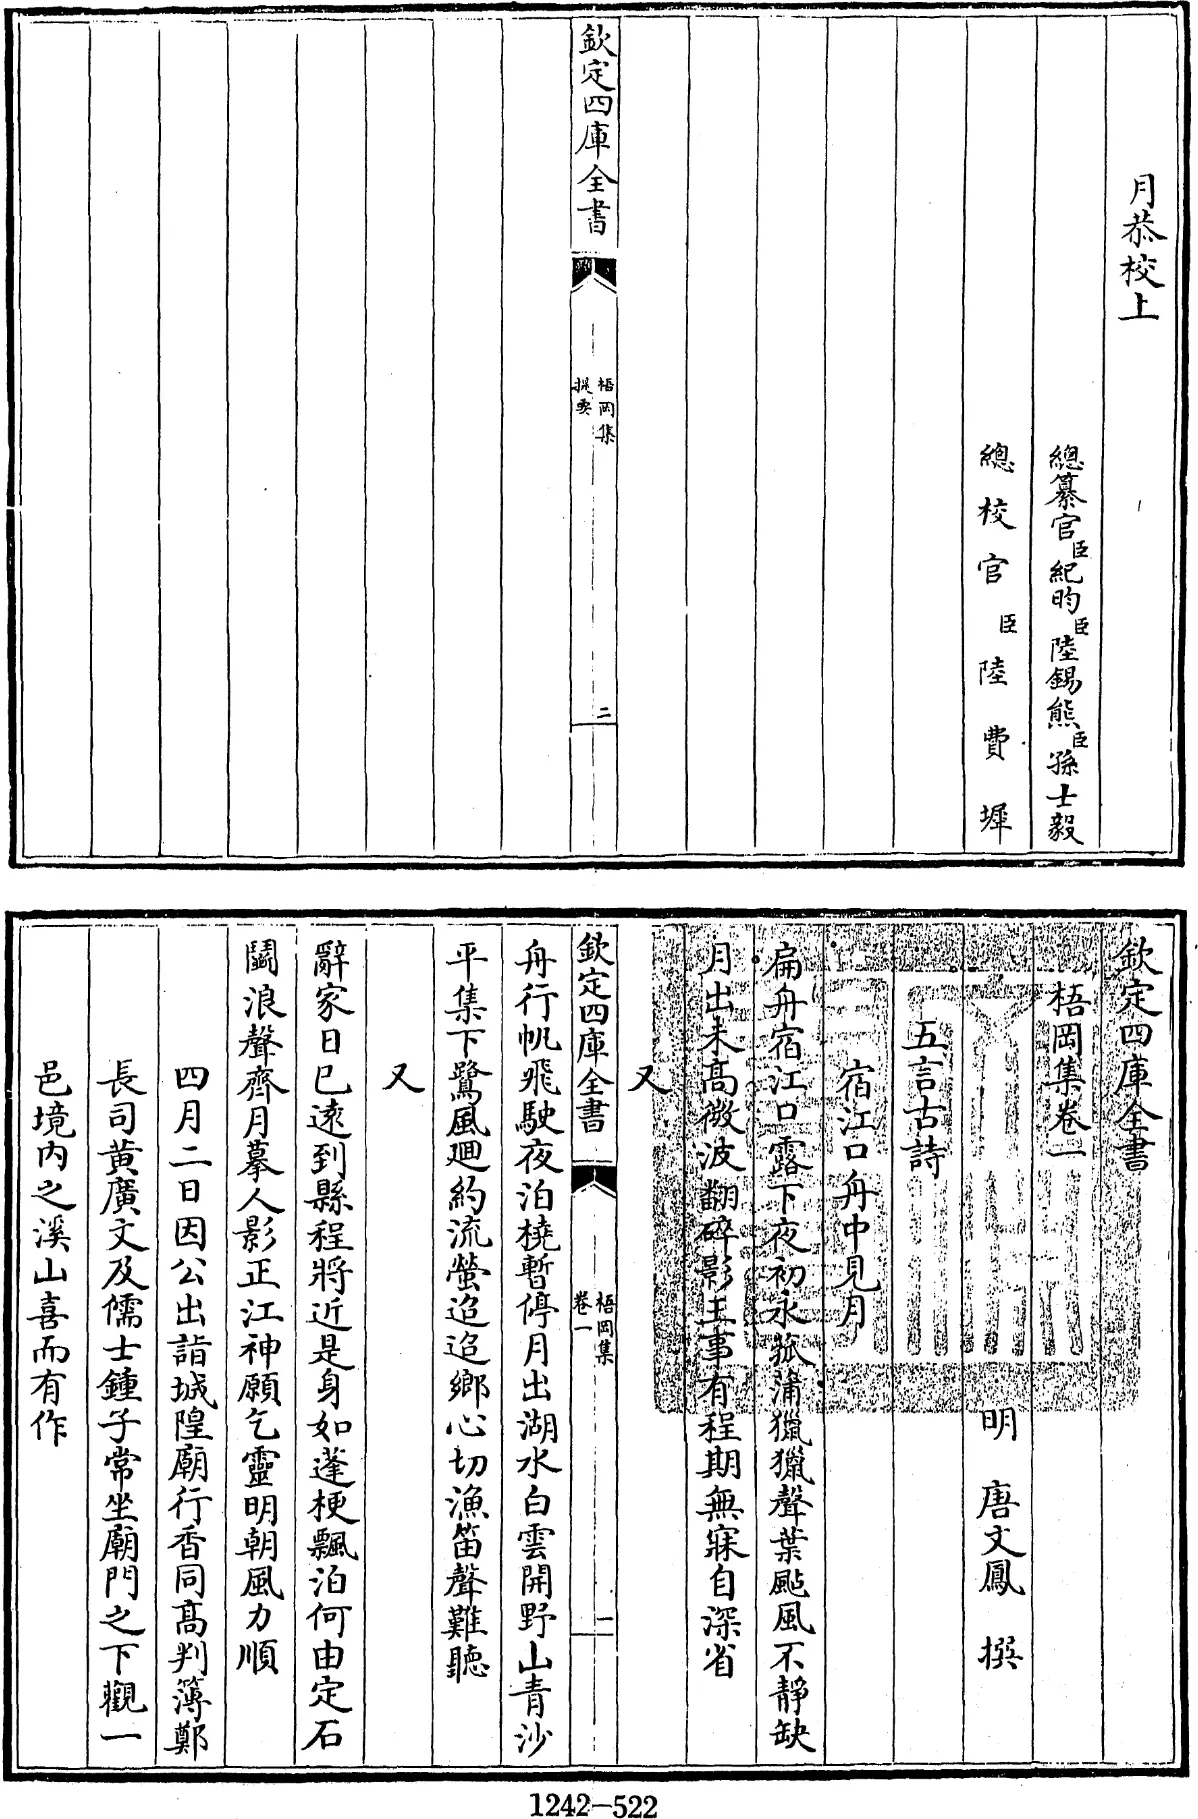 月恭校上
總纂官臣紀昀臣陸錫熊臣孫士毅
總校官臣陸費墀
欽定四庫全書
梧岡集
提要
二
欽定四庫全書
梧岡集卷一
明 唐文鳳 撰
五言古詩
宿江口舟中見月
扁舟宿江口露下夜初永菰蒲獵獵聲葉颭風不靜缺
月出未高微波翻碎影王事有程期無寐自深省
又
欽定四庫全書
梧岡集
卷一
一
舟行帆飛駛夜泊橈暫停月出湖水白雲開野山青沙
平集下鷺風迴約流螢迢迢鄉心切漁笛聲難聽
又
辭家日已遠到縣程將近是身如蓬梗飄泊何由定石
鬪浪聲齊月摹人影正江神願乞靈明朝風力順
四月二日因公出詣城隍廟行香同高判簿鄭
長司黃廣文及儒士鍾子常坐廟門之下觀一
邑境內之溪山喜而有作
1242-522